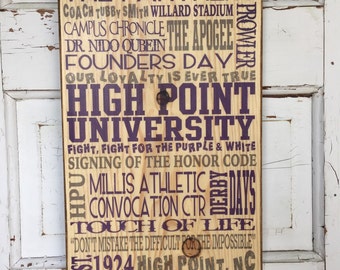 COACH TUBBY SMITH WILLARD STADIUM
PROWLER
CAMPUS CHRONICLE
DR. NIDO QUBEIN THE APOGEE
FOUNDERS DAY
OUR LOYALTY IS EVER TRUE
HIGH POINT
UNIVERSITY
FIGHT, FIGHT FOR THE PURPLE & WHITE
SIGNING OF THE HONOR CODE
HPU
MILLIS ATHLETIC
CONVOCATION CTR
DERBY
DAYS
TOUCH OF LIFE
"DON'T MISTAKE THE DIFFICULT FOR THE IMPOSSIBLE"
EST. 1924 HIGH POINT, NC